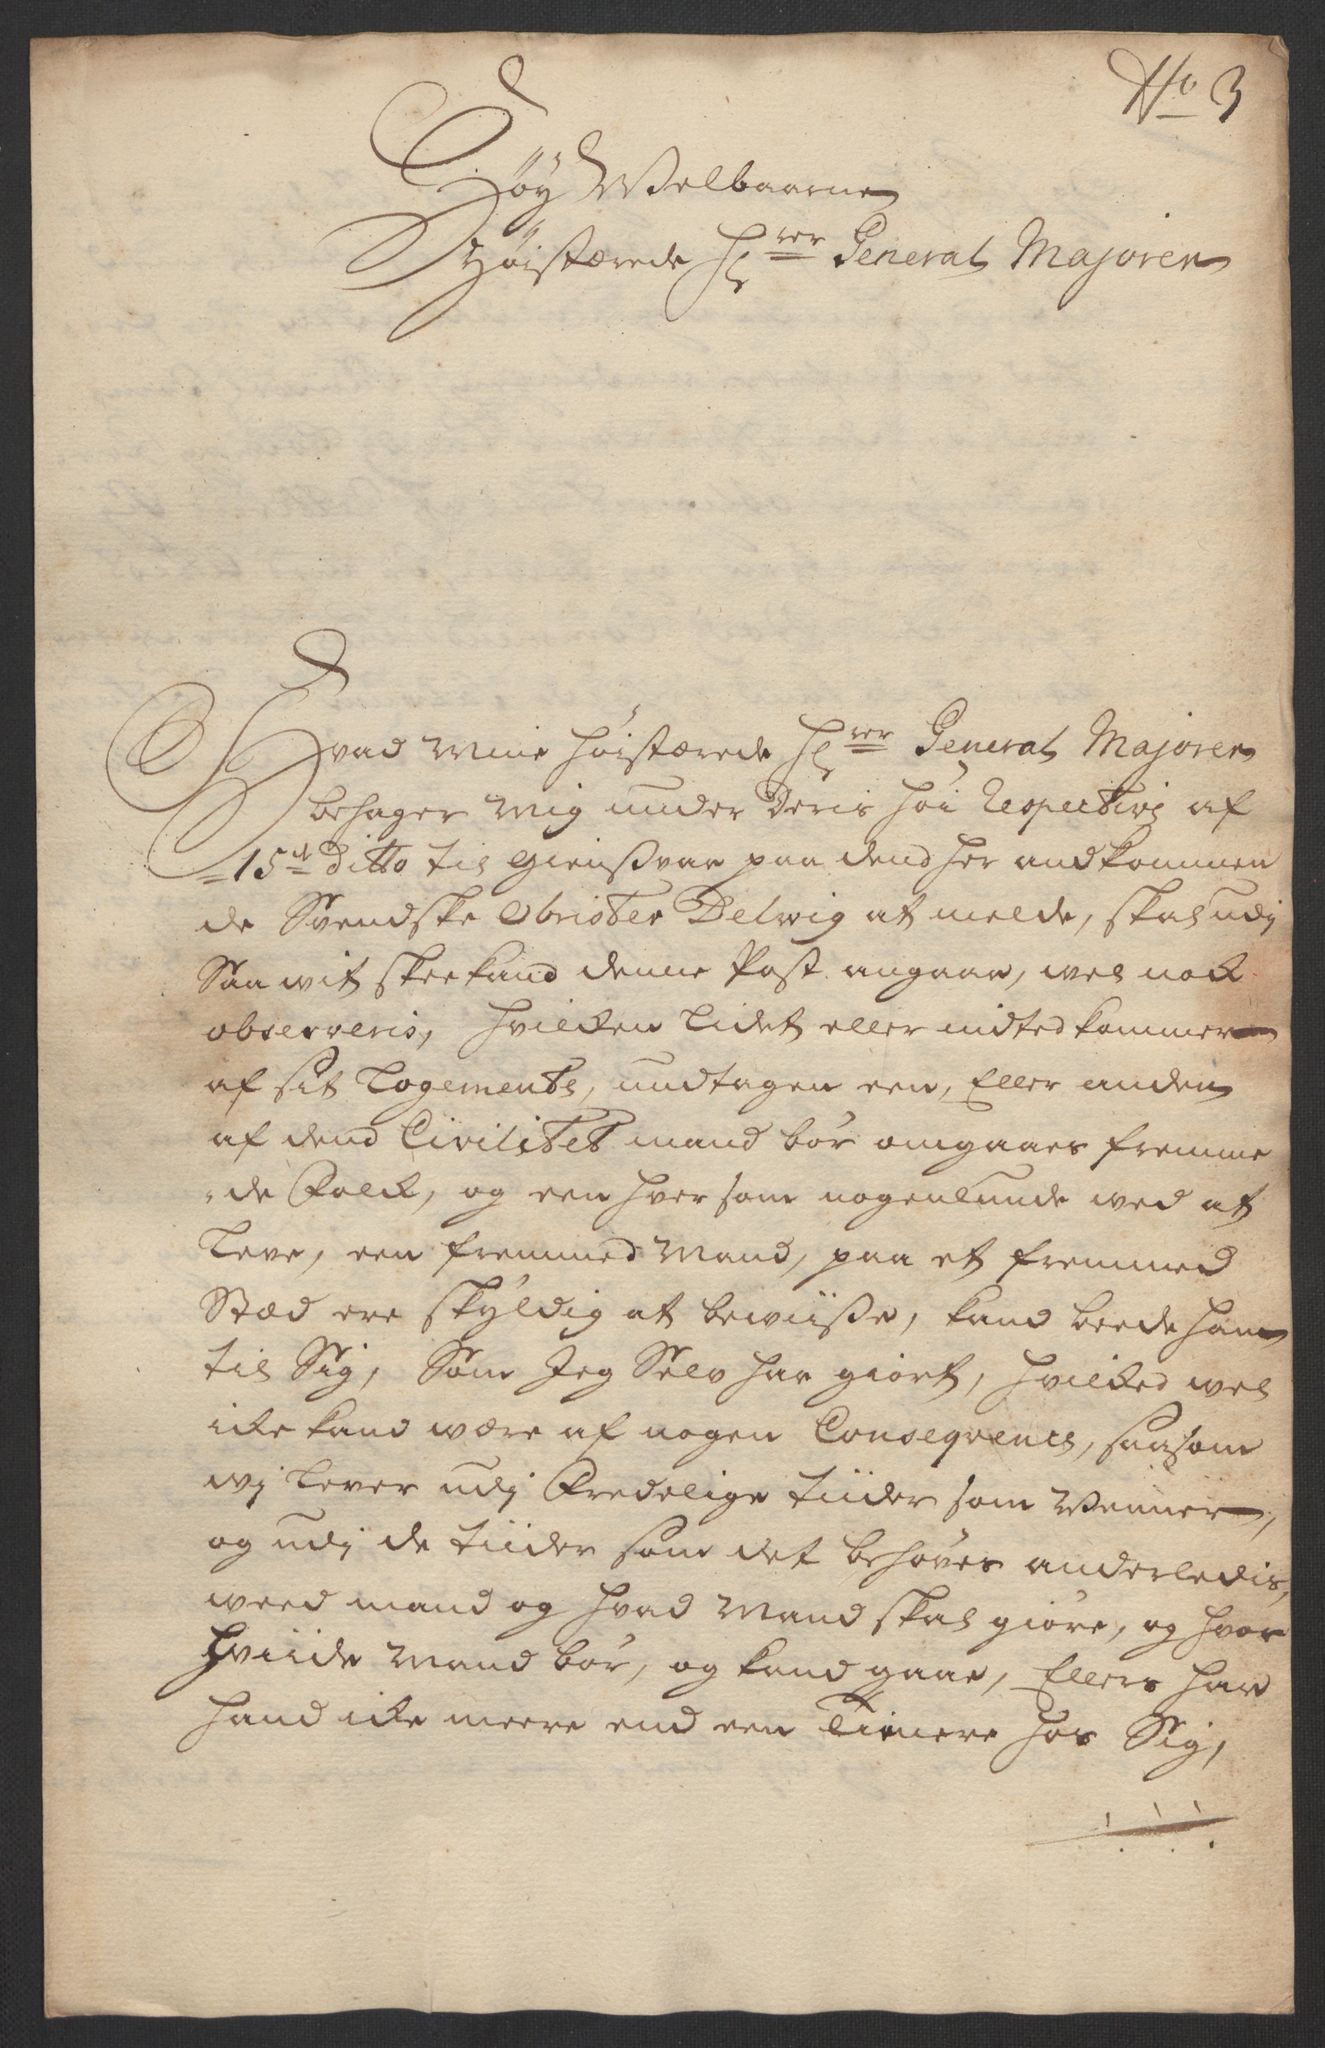 No 3
Høy Welbaarne
Høistærede Hr General Majoren
Hvad Min høistærede Hr General Majoren
behager Mig under Deris høi Respective af
15de Ditto til giensvar paa dend her andkommen
de Svendske Obrister Delwig at melde, skal udj
Saa wit skee kand denne Post angaar, wel nock
observeris, hvilken lidet eller indted kommer
af sit Logemente, undtagen een, Eller anden
af dend Civilitet mand bør omgaaes fremme
de Folck, og een hver som nogenlunde wed at
Leve, een fremmed Mand, paa et fremmed
Stæd ere skyldig at bewiiße, kand beede ham
til Sig, Som Jeg Selv har giort, hvilked wel
icke kand være af nogen Conseqvence, saasom
wj lever udj Fredelige tiider som Venner,
og udj de tiider som det behøves anderledis,
weed mand og hvad Mand skal giøre, og hvor
hviide Mand bør, og kand gaae, Ellers har
hand icke meere end een Tienere hos Sig,